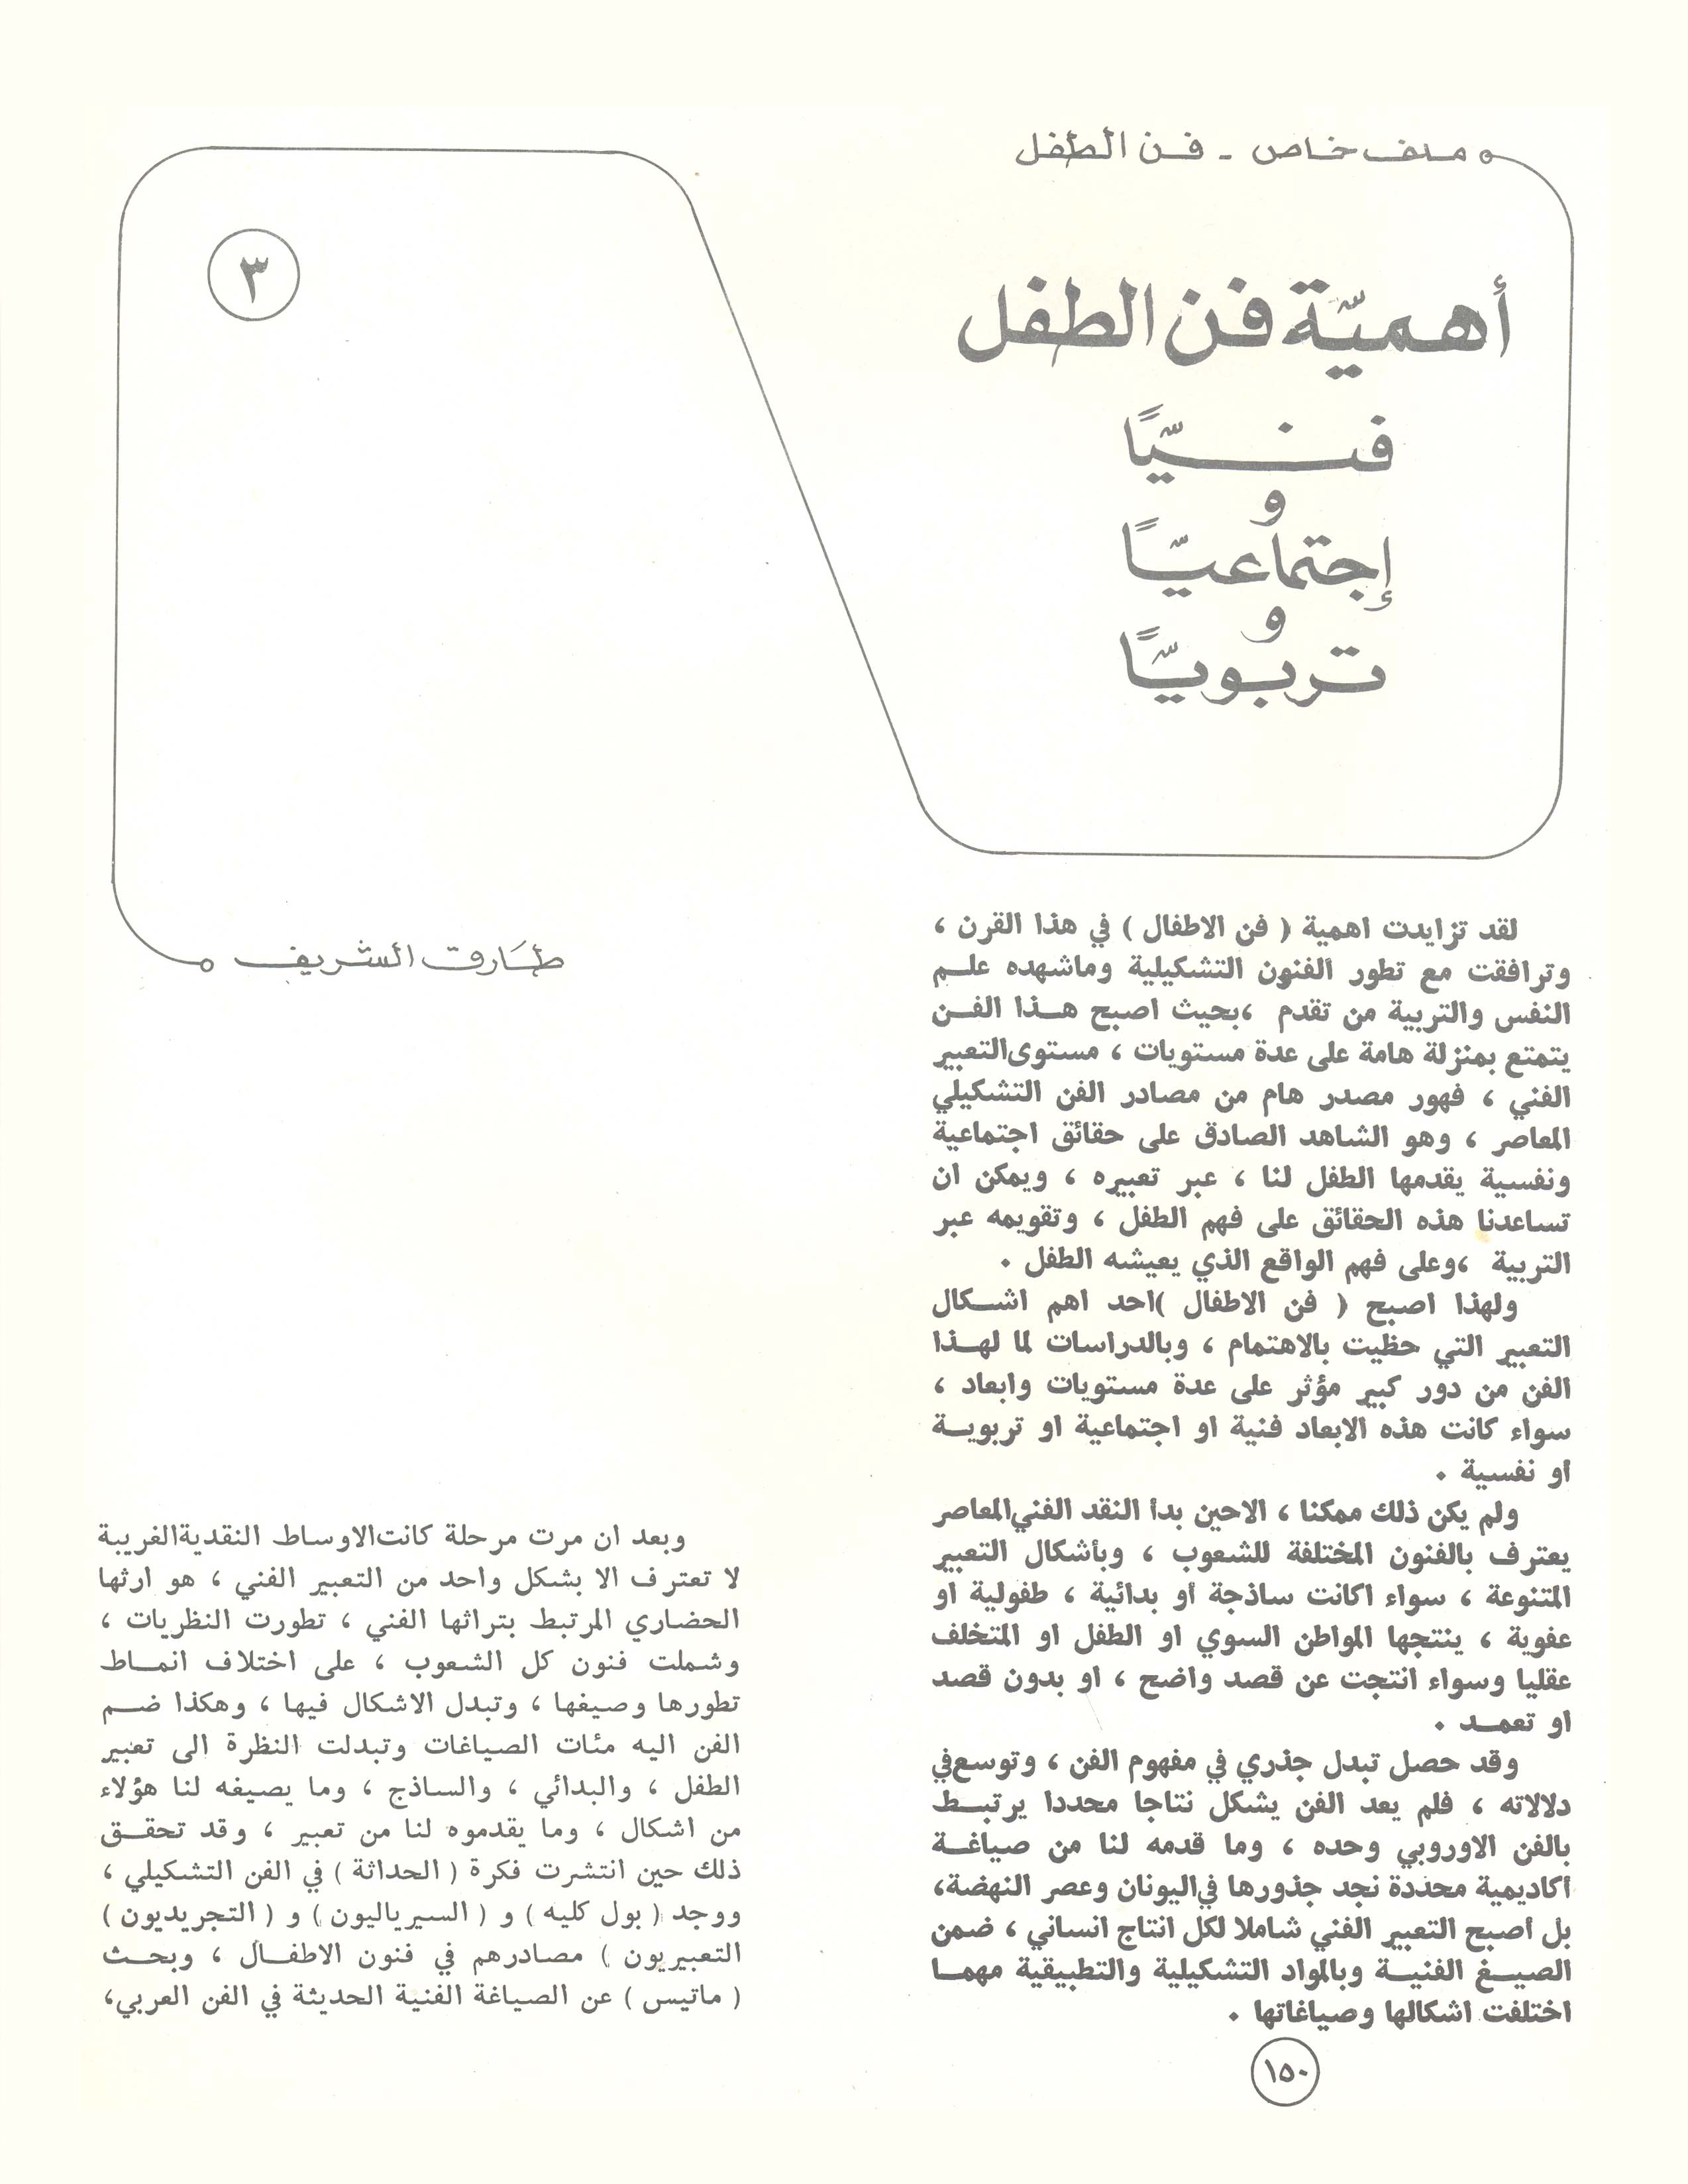 ملف خاص - فن الطفل
٣
أهميّة فن الطفل
فنيّاً
و
إجتماعيّاً
و
تربويّاً
طارق الشريف
لقد تزايدت اهمية ( فن الاطفال ) في هذا القرن ،
وترافقت مع تطور الفنون التشكيلية وماشهده علم
النفس والتربية من تقدم ،بحيث اصبح هذا الفن
يتمتع بمنزلة هامة على عدة مستويات ، مستوى التعبير
الفني ، فهور مصدر هام من مصادر الفن التشكيلي
المعاصر ، وهو الشاهد الصادق على حقائق اجتماعية
ونفسية يقدمها الطفل لنا ، عبر تعبيره ، ويمكن ان
تساعدنا هذه الحقائق على فهم الطفل ، وتقويمه عبر
التربية ،وعلى فهم الواقع الذي يعيشه الطفل .
ولهذا اصبح ( فن الاطفال )احد اهم اشكال
التعبير التي حظيت بالاهتمام ، وبالدراسات لما لهذا
الفن من دور كبير مؤثر على عدة مستويات وابعاد ،
سواء كانت هذه الابعاد فنية او اجتماعية او تربوية
او نفسية .
ولم يكن ذلك ممكنا ، الاحين بدأ النقد الفني المعاصر
يعترف بالفنون المختلفة للشعوب ، وبأشكال التعبير
المتنوعة ، سواء اكانت ساذجة أو بدائية ، طفولية او
عفوية ، ينتجها المواطن السوي او الطفل او المتخلف
عقليا وسواء انتجت عن قصد واضح ، او بدون قصد
او تعمد .
وقد حصل تبدل جذري في مفهوم الفن ، وتوسع في
دلالاته ، فلم يعد الفن يشكل نتاجا محددا يرتبط
بالفن الاوروبي وحده ، وما قدمه لنا من صياغة
أكاديمية محددة نجد جذورها في اليونان وعصر النهضة،
بل اصبح التعبير الفني شاملا لكل انتاج انساني ، ضمن
الصيغ الفنية وبالمواد التشكيلية والتطبيقية مهما
اختلفت اشكالها وصياغاتها .
وبعد ان مرت مرحلة كانت الاوساط النقدية الغريبة
لا تعترف الا بشكل واحد من التعبير الفني ، هو ارثها
الحضاري المرتبط بتراثها الفني ، تطورت النظريات ،
وشملت فنون كل الشعوب ، على اختلاف انماط
تطورها وصيغها ، وتبدل الاشكال فيها ، وهكذا ضم
الفن اليه مئات الصياغات وتبدلت النظرة الى تعبير
الطفل ، والبدائي ، والساذج ، وما يصيغه لنا هؤلاء
من اشكال ، وما يقدموه لنا من تعبير ، وقد تحقق
ذلك حين انتشرت فكرة ( الحداثة ) في الفن التشكيلي ،
ووجد ( بول كليه ) و ( السيرياليون ) و ( التجريديون )
التعبيريون ) مصادرهم في فنون الاطفال ، وبحث
( ماتيس ) عن الصياغة الفنية الحديثة في الفن العربي،
١٥٠